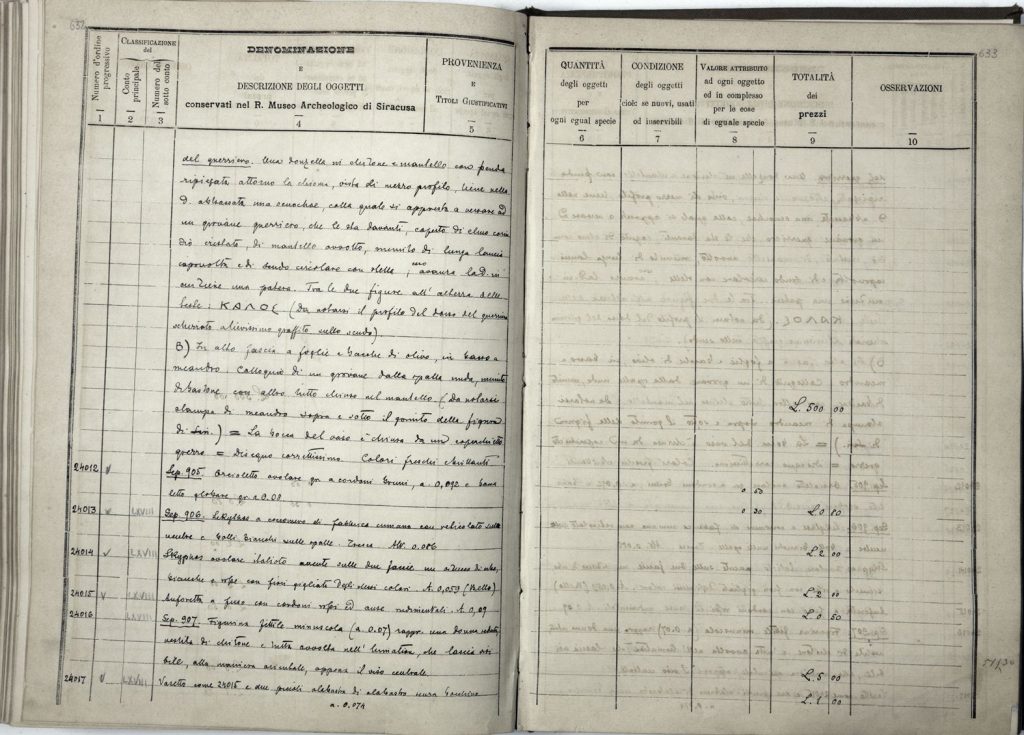 632
Numero d'ordine progressivo
CLASSIFICAZIONE del
Conto principale
Numero del sotto conto
DENOMINAZIONE
E
DESCRIZIONE DEGLI OGGETTI
conservati nel R. Museo Archeologico di Siracusa
PROVENIENZA
E
TITOLI GIUSTIFICATIVI
1 2 3 4 5
del guerriero. Una donzella in chitone e mantello con benda
ripiegata attorno la chioma, vista di mezzo profilo, tiene nella
d. abbassata una oenochoe, colla quale si appresta a versare ad
un giovane guerriero, che le sta davanti, coperto di elmo corin
dio crestato, di mantello avvolto, munito di lunga lancia
capovolta e di scudo circolare con stella; avanza la d. in
cui tiene una patera. Tra le due figure all'altezza delle
teste: ΚΑΛΟΣ (Da notarsi il profilo del dorso del guerriero
graffito sullo scudo).
B) In alto fascia a foglie e bacche di olivo, in basso a
meandro. Colloquio di un giovane dalla spalla nuda, munito
di bastone, con altro tutto chiuso nel mantello. (Da notarsi
stampa di meandro sopra e sotto il gomito della figura
di sin.) = La bocca del vaso è chiusa da un coperchietto
grezzo = Disegno correttissimo. Colori freschi brillanti.
24012 Sep. 905. Orcioletto ovolare gr. a cordoni bruni, a. 0,092 e vasu
letto globare gr. a 0.08
24013 LXVIII Sep. 906. Lekythos a di fabbrica cumana con reticolato sul
ventre e bianchi sulle spalle. Alt. 0.086
24014 LXVIII Skyphos ovolare italioto avente sulle due faccie un
bianche e rosse con fiori gigliati degli stessi colori. A. 0,059 (Bello)
24015 LXVIII Anforetta a fuso con cordoni rossi ed anse rudimentali. A. 0,09
24016 LXVIII Sep. 907. Figurina fittile minuscola (a. 0.07) rappr. una donna seduta,
vestita di chitone e tutta avvolta nell'himation, che lascia visi
bile, alla maniera orientale, appena il viso centrale.
24017 LXVIII Vasetto come 24015 e due piccoli alabastra di alabastro senza
a. 0.074
633
QUANTITÀ
degli oggetti
per
ogni egual specie
6
CONDIZIONE
degli oggetti
cioè: se nuovi, usati
od inservibili
7
VALORE ATTRIBUITO
ad ogni oggetto
od in complesso
per le cose
di eguale specie
8
TOTALITÀ
dei
prezzi
9
OSSERVAZIONI
10
L. 500 00
0 50
0 30 L. 0 80
L. 2 00
L. 2 00
L. 0 50
L. 5 00
L. 1 00